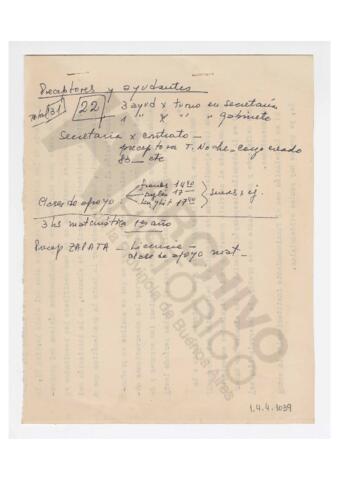 Preceptores y ayudantes
total 31 22 3 ayud x turno en secretaría
1 " " " " gabinete
Secretaria x contrato _
preceptora T. Noche _ cargo creado
83 _ etc
Clases de apoyo: francés 14 00
inglés 17
17 00
3 hs matemática 1er año
Precep ZAPATA _ Licencia _
clase de apoyo mat _
ARCHIVO
HISTÓRICO
Provincia de Buenos Aires
1.4.4.1039